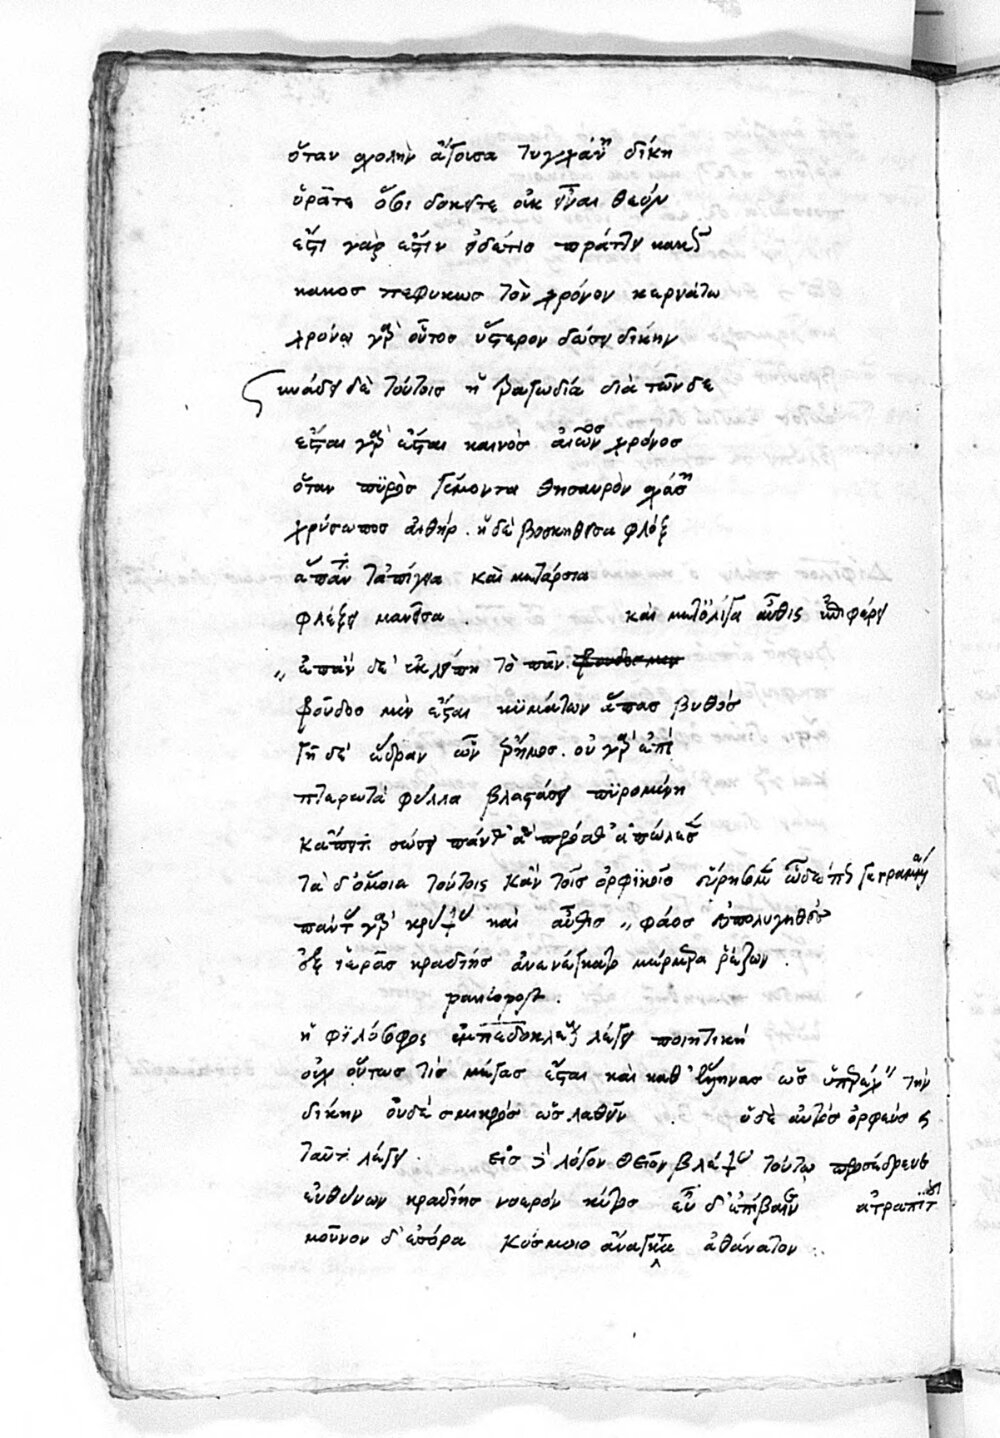 ὅταν σχολὴν ἄγουσα τυγχάνῃ δίκη
ὁρᾶτε ὅσοι δοκεῖτε οὐκ εἶναι θεόν
ἔστι γὰρ ἔστιν εἰ δέ τις πράττει κακῶς
κακὸς πεφυκὼς τὸν χρόνον κερδάτω
χρόνῳ γὰρ οὗτος ὕστερον δώσει δίκην
συνάδει δὲ τούτοις ἡ τραγωδία διὰ τῶνδε
ἔσται γὰρ ἔσται καινὸς αἰῶνος χρόνος
ὅταν πυρὸς γέμοντα θησαυρὸν σχάσῃ
χρύσωπος αἰθήρ. ἡ δὲ βοσκηθεῖσα φλὸξ
ἅπαντα τἀπίγεια καὶ μετάρσια
φλέξει μανεῖσα . καὶ μετ' ὀλίγα αὖθις ἐπιφέρει
„ ἐπὰν δὲ ἐκλίπῃ τὸ πᾶν.
φροῦδος μὲν ἔσται κυμάτων ἅπας βυθός
γῆ δὲ ἑδράνων ἔρημος. οὐ γὰρ ἔτι
πτερωτὰ φῦλλα βλαστάσει πυρουμένη
κἄπειτα σώσει πάνθ' ἃ πρόσθ' ἀπώλεσε
τὰ δ' ὅμοια τούτοις κἂν τοῖς ὀρφϊκοῖς εὑρήσομεν ὧδέ πως γεγραμμένα
πάντας γὰρ κρύψας καὶ αὖθις „ φάος ἐς πολυγηθὲς
ἐξ ἱερᾶς κραδίης ἀνενέγκατο μέρμερα ῥέζων .
ἡ φϊλόσοφος ἐμπεδοκλέους λέγει ποιητική
οὐχ οὕτως τὶς μέγας ἔσται καὶ καθ' ἕλληνας ὡς ὑπερέχειν τὴν
δίκην οὐδὲ σμικρὸς ὡς λαθεῖν . ὁ δὲ αὐτὸς ὀρφεὺς καὶ
ταῦτα λέγει . εἰς δὲ λόγον θεῖον βλέψας τούτῳ προσέδρευε
εὐθύνων κραδίης νοερὸν κύτος εὖ δ' ἐπίβαινε ἀτραπιτοῦ
μοῦνον δ' ἐσόρα κόσμοιο ἄνακτα ἀθάνατον :.